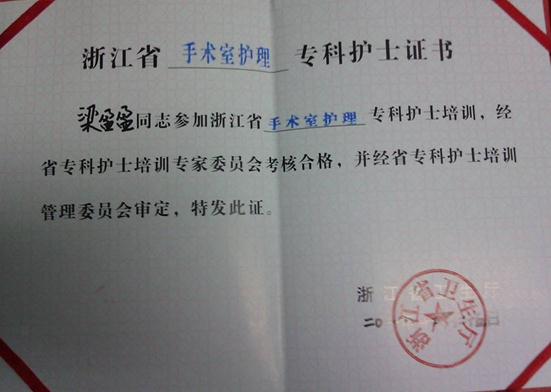 浙江省 手术室护理 专科护士证书
梁盈盈同志参加浙江省手术室护理专科护士培训，经
省专科护士培训专家委员会考核合格，并经省专科护士培训
管理委员会审定，特发此证。
浙江省卫生厅
二〇
浙江省卫生厅